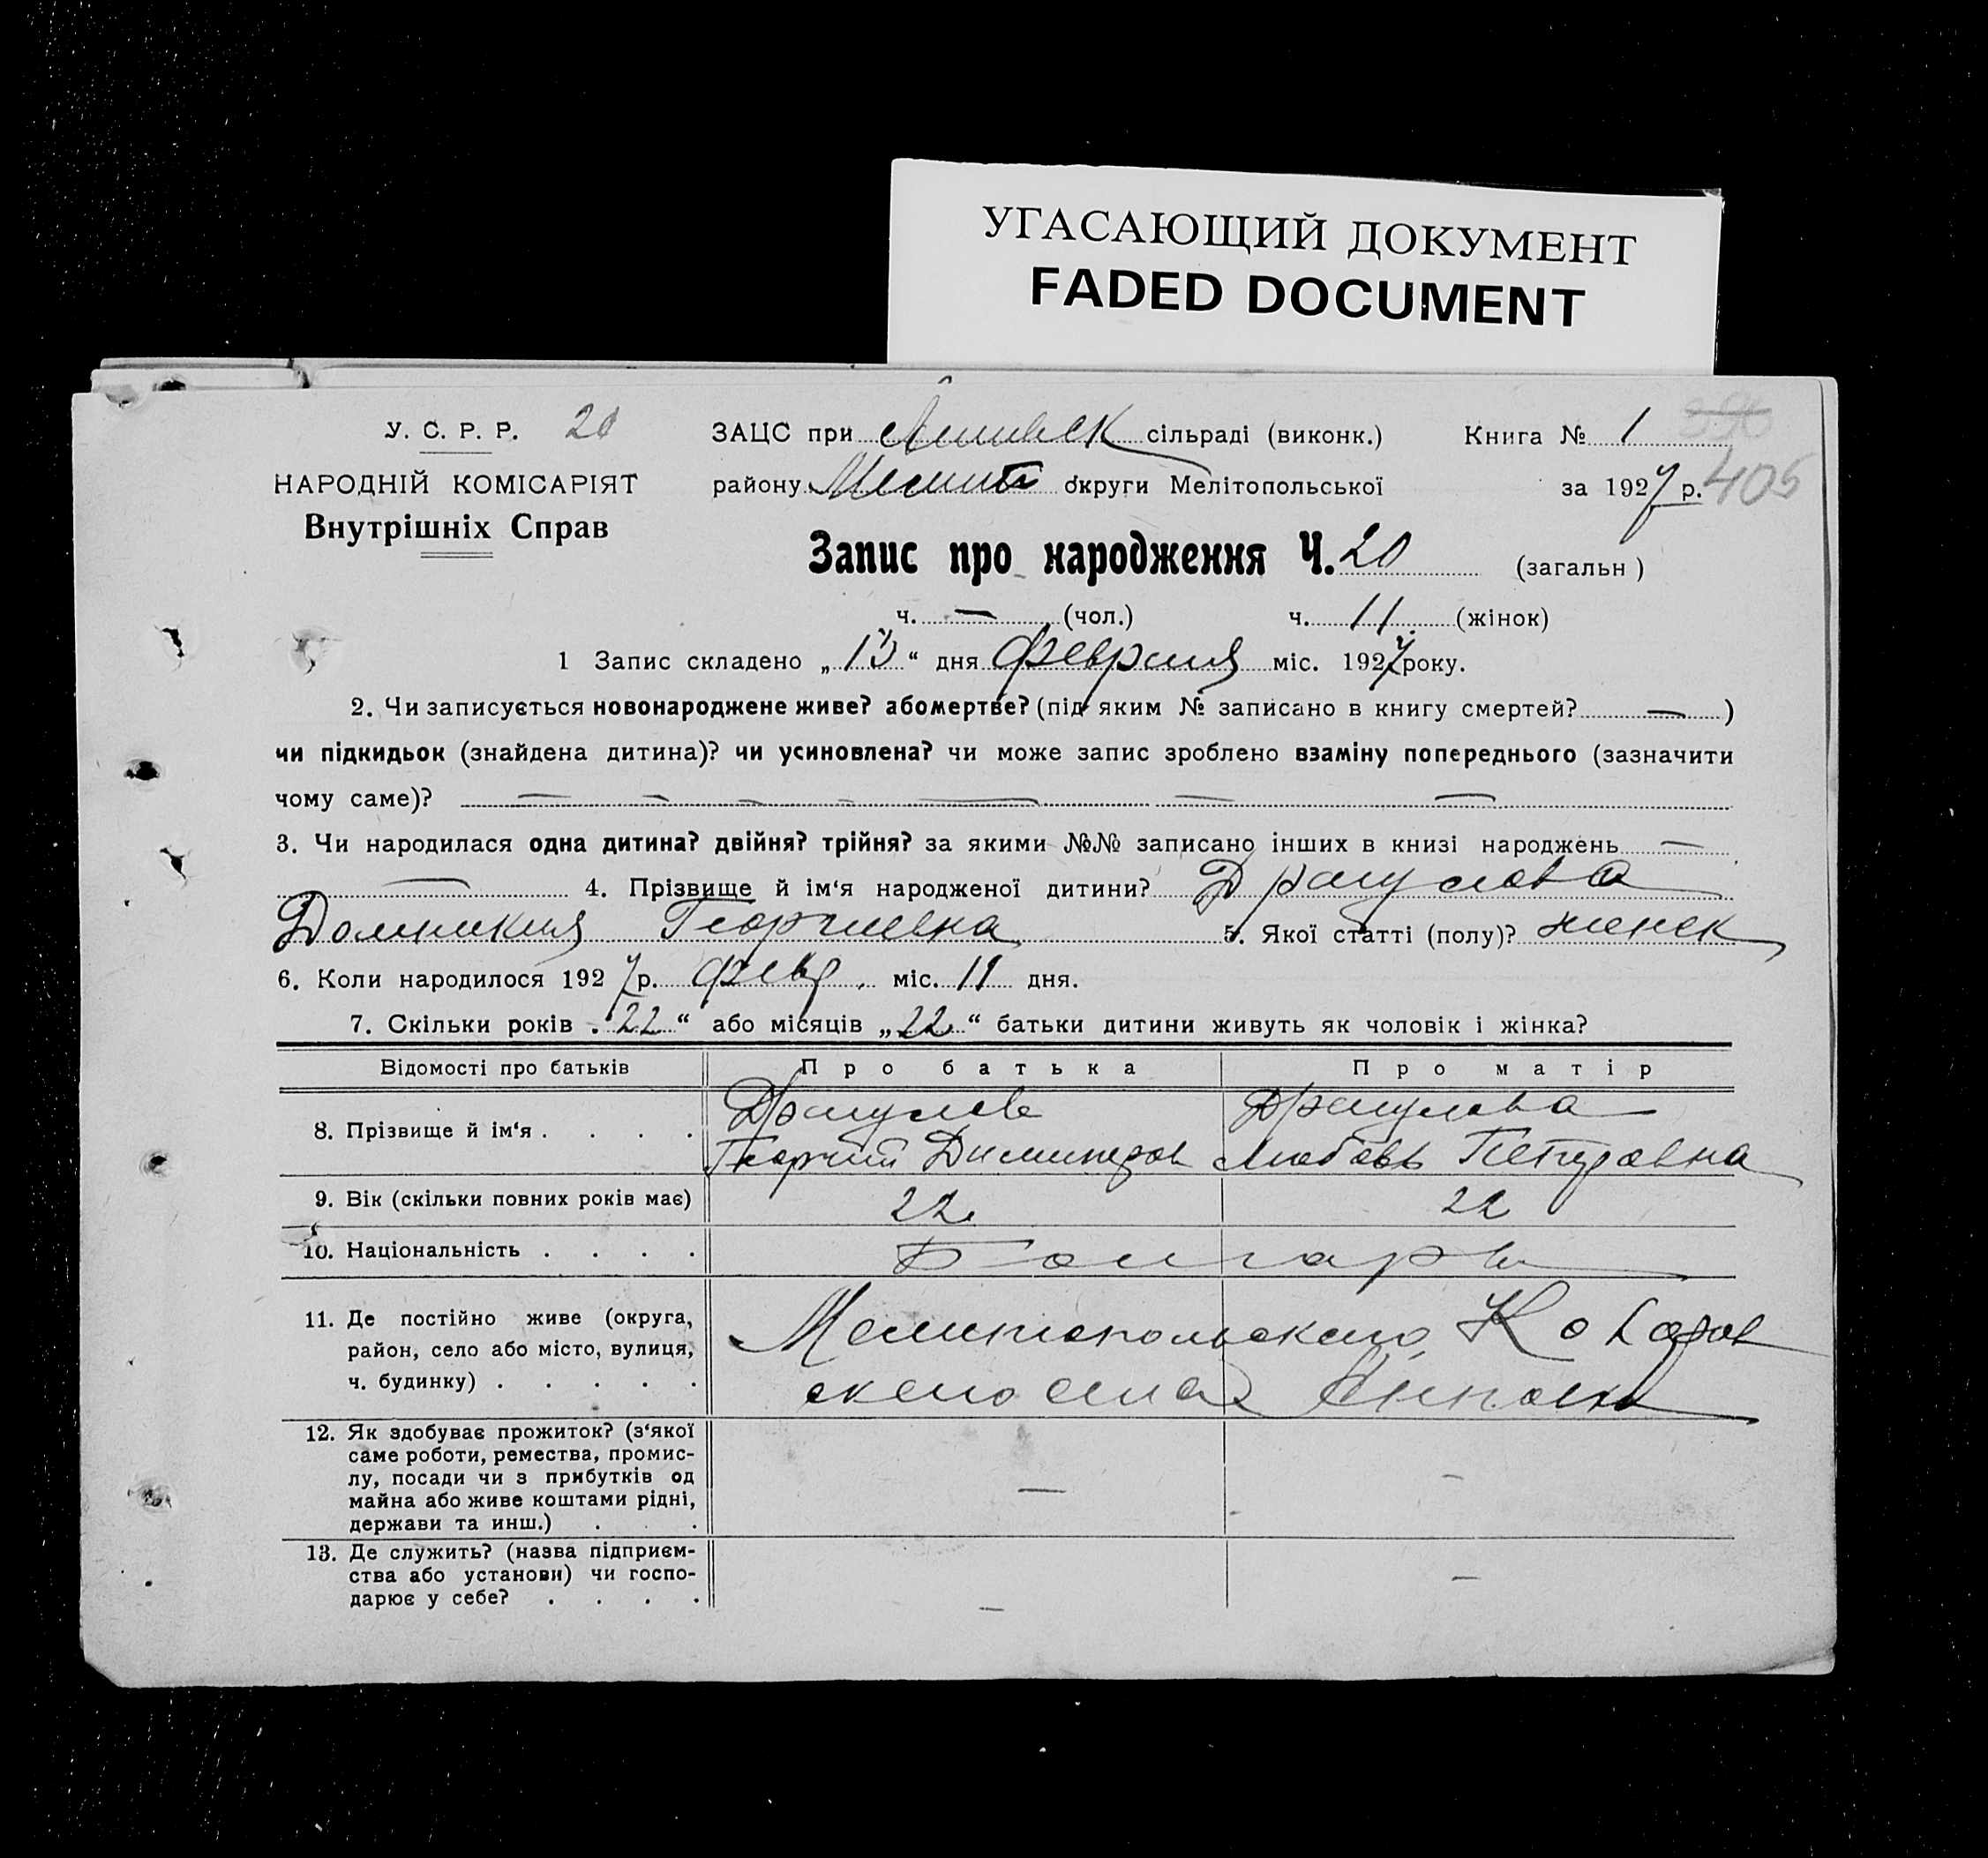 УГАСАЮЩИЙ ДОКУМЕНТ
FADED DOCUMENT
У. С. Р. Р. 20
ЗАЦС при сільраді (виконк.) Книга № 1
НАРОДНІЙ КОМІСАРІЯТ
району Мелит округи Мелітопольської за 1927 р. 405
Внутрішніх Справ
Запис про народження Ч. 20 (загальн )
ч. — (чол.) ч. 11 (жінок)
1 Запис складено „ 13 “ дня февраля міс. 1927 року.
2. Чи записується новонароджене живе? або мертве? (під яким № записано в книгу смертей? — )
чи підкидьок (знайдена дитина)? чи усиновлена? чи може запис зроблено взаміну попереднього (зазначити
чому саме)? — — — — — — —
3. Чи народилася одна дитина? двійня? трійня? за якими №№ записано інших в книзі народжень —
— 4. Прізвище й ім‘я народженої дитини? Драгулова
Домникия Георгиевна 5. Якої статті (полу)? женск
6. Коли народилося 1927 р. февр. міс. 11 дня.
7. Скільки років „ 22 “ або місяців „ 22 “ батьки дитини живуть як чоловік і жінка?
Відомості про батьків Про батька Про матір
8. Прізвище й ім‘я . . . . Драгулов Драгулова
Георгий Димитров Любовь Петровна
9. Вік (скільки повних років має) 22 22
10. Національність . . . . Болгары
11. Де постійно живе (округа,
район, село або місто, вулиця,
ч. будинку) . . . . .
Мелитопольского
села
12. Як здобуває прожиток? (з‘якої
саме роботи, ремества, промис-
лу, посади чи з прибутків од
майна або живе коштами рідні,
держави та инш.) . . . — —
13. Де служить? (назва підприєм-
ства або установи) чи госпо-
дарює у себе? . . . . — —